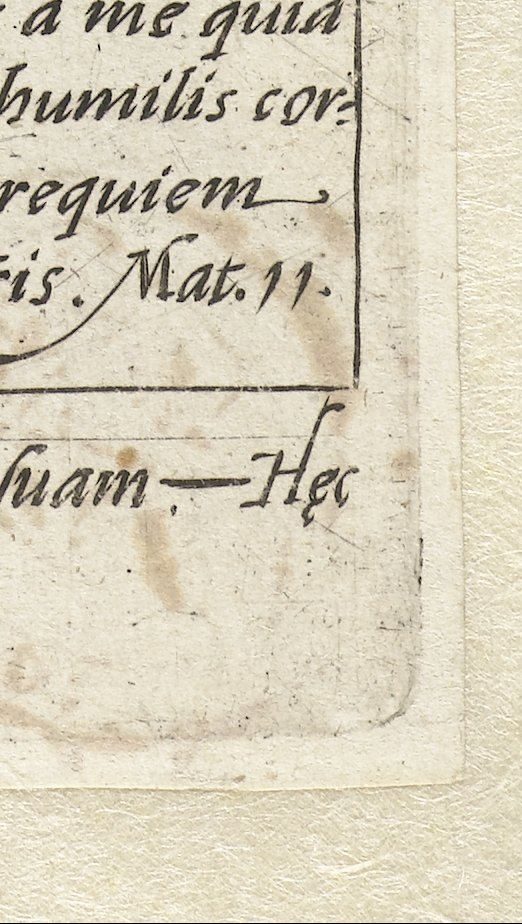 a me quia
humilis cor=
requiem
ris. Mat. 11.
suam. — Hęc